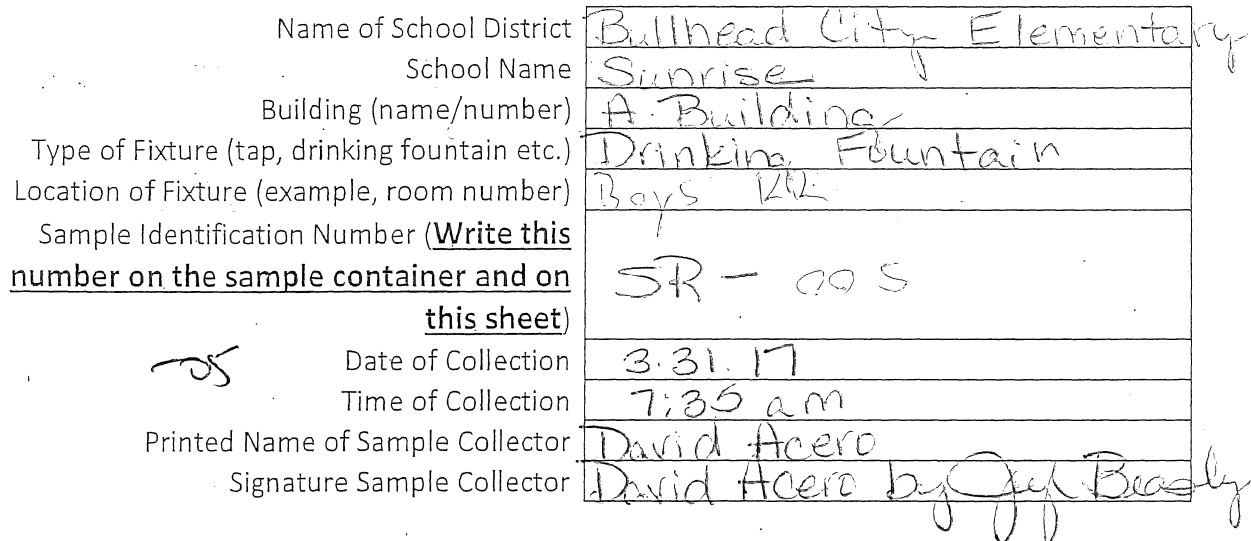 Name of School District Bullhead City Elementary
School Name Sunrise
Building (name/number) A Building
Type of Fixture (tap, drinking fountain etc.) Drinking Fountain
Location of Fixture (example, room number) Boys RR
Sample Identification Number (Write this
number on the sample container and on
this sheet) SR - 005
-05 Date of Collection 3.31.17
Time of Collection 7:35 am
Printed Name of Sample Collector David Acero
Signature Sample Collector David Acero by Beasly